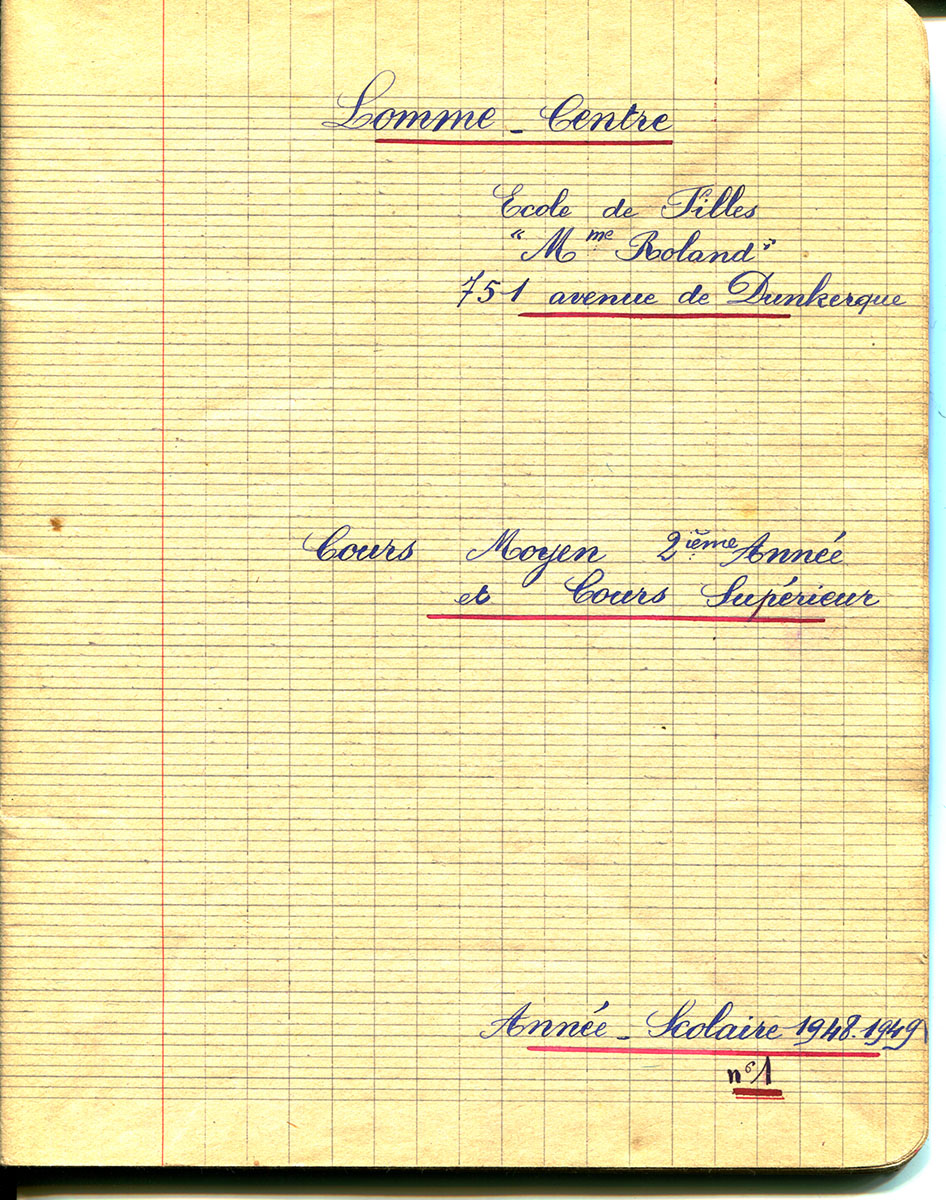 Lomme - Centre
Ecole de Filles
"Mme Roland"
751 avenue de Dunkerque
Cours Moyen 2ième Année
et Cours Supérieur
Année - Scolaire 1948.1949
n°1